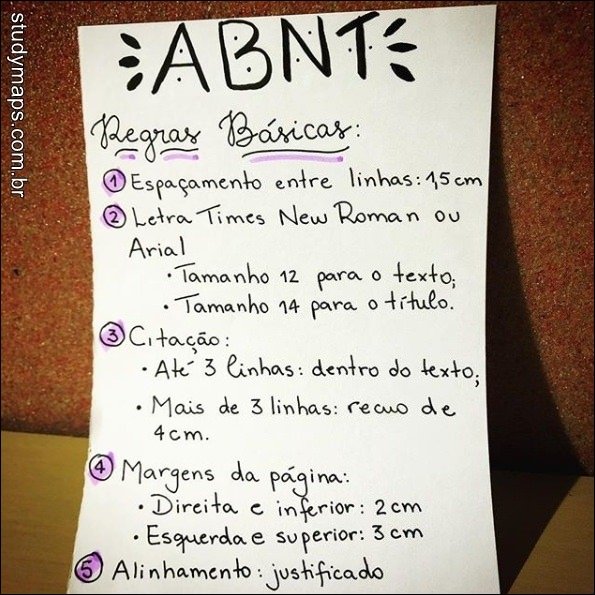 studymaps.com.br
ABNT
Regras Básicas:
1 Espaçamento entre linhas: 1,5cm
2 Letra Times New Roman ou
Arial
• Tamanho 12 para o texto;
• Tamanho 14 para o título.
3 Citação:
• Até 3 linhas: dentro do texto;
• Mais de 3 linhas: recuo de
4cm.
4 Margens da página:
• Direita e inferior: 2cm
• Esquerda e superior: 3cm
5 Alinhamento: justificado